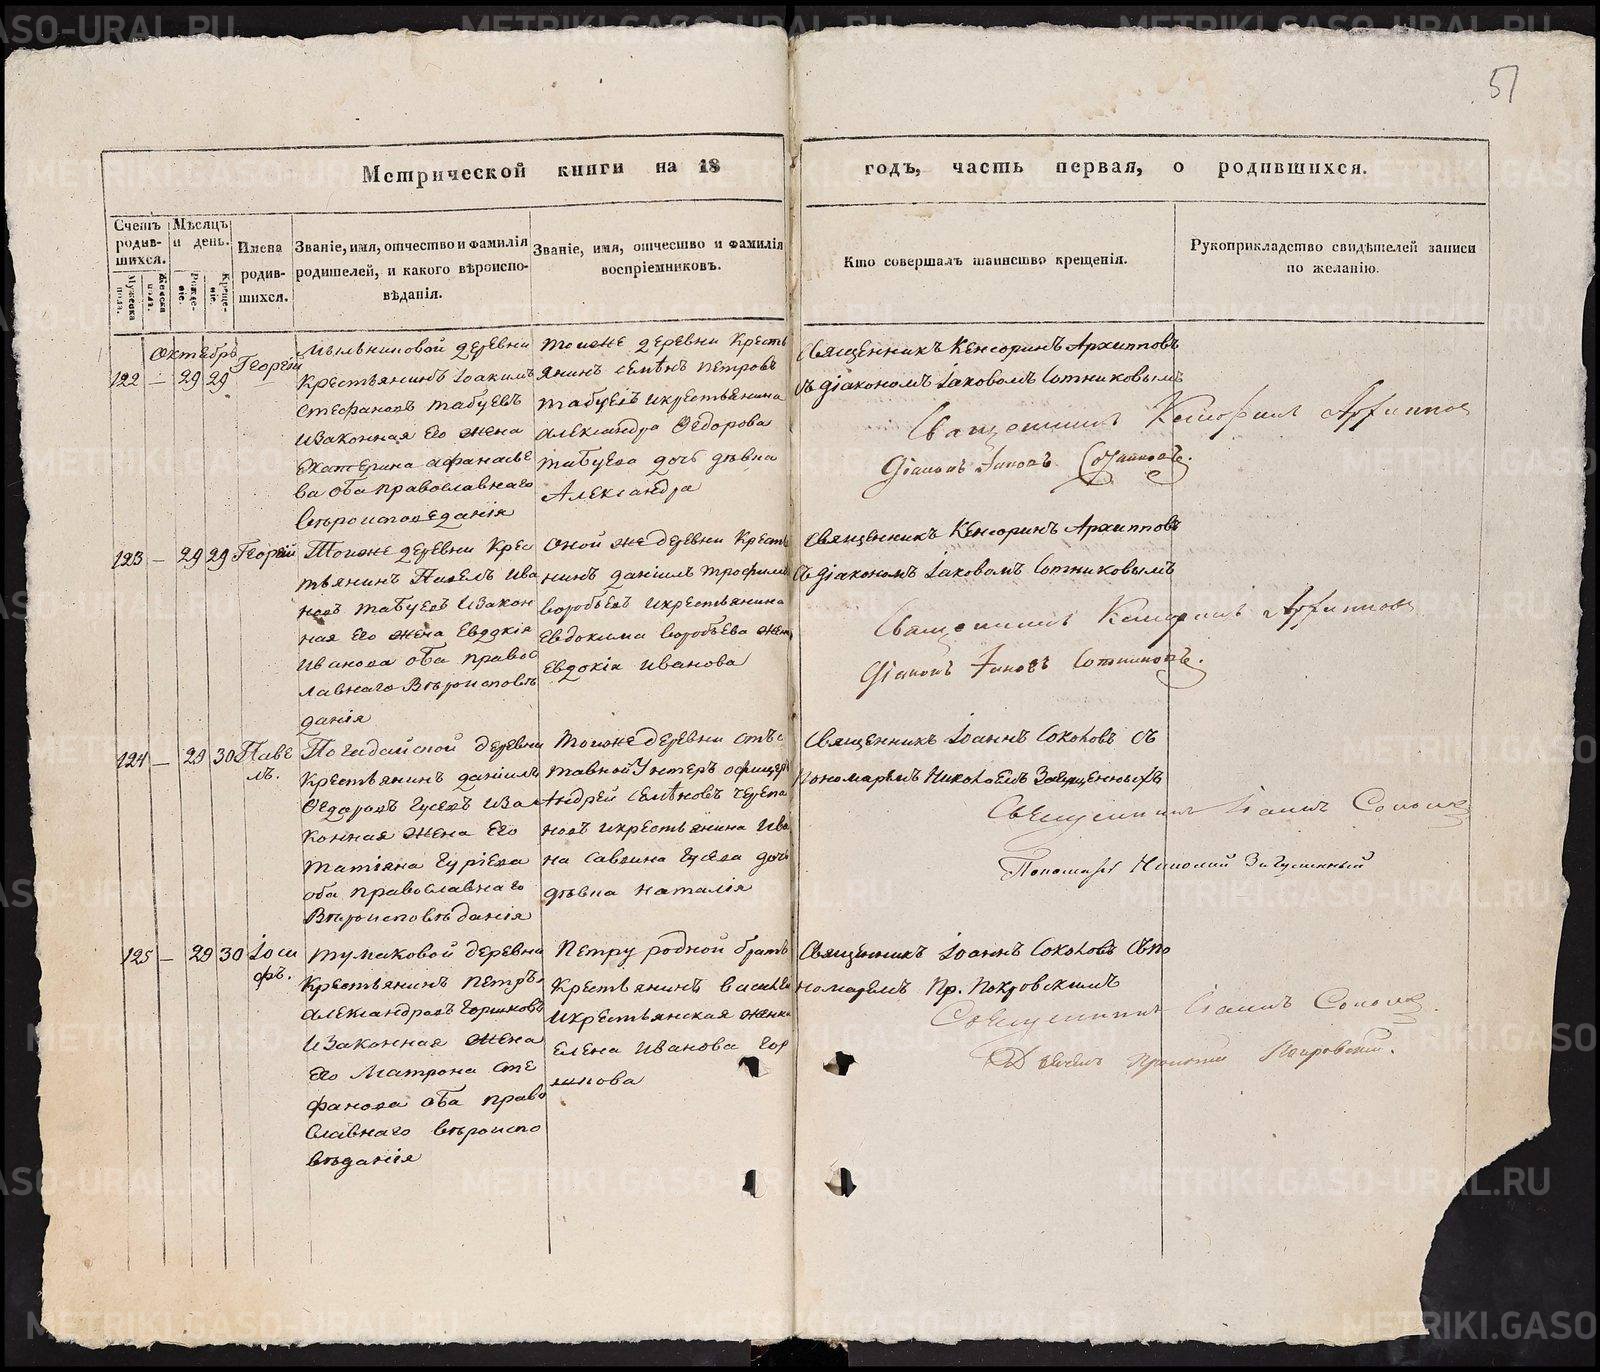 51
Метрической книги на 18 годъ, часть первая, о родившихся.
Счетъ родив-шихся.
Мужеска пола.
Женска пола.
Мѣсяцъ и день.
Рожде-нiе.
Креще-нiе.
Имена родив-шихся.
Званiе, имя, отчество и фамилiя
родителей, и какого вѣроиспо-
вѣданiя.
Званiе, имя, отчество и фамилiя
воспрiемниковъ.
Кто совершалъ таинство крещенiя.
Рукоприкладство свидѣтелей записи
по желанiю.
Октябрь
122 — 29 29 Георгiй
деревни
Крестьянинъ Iоакимъ
Стефановъ Табуевъ
и законная его жена
Екатерина Афанасье
ва оба православнаго
вѣроисповеданiя
тоиже деревни кресть
янинъ Семѣнъ Петровъ
Табуевъ и крестьянина
Александра Федорова
Табуева дочь дѣвка
Александра
Священникъ Кенсоринъ Архипповъ
съ дiакономъ Iаковомъ Сотниковымъ
Священникъ Кенсорин Архиппов
Дiаконъ Iаковъ Сотниковъ.
123 — 29 29 Георгiй
Тоиже деревни крес
тьянинъ Павелъ Ива
новъ Табуевъ и закон
ная его жена Евдокiя
Иванова оба правос
лавнаго вѣроисповѣ
данiя
Оной же деревни кресть
нинъ Данiилъ Трофимовъ
Воробьевъ и крестьянина
Евдокима Воробьева жена
Евдокiя Иванова
Священникъ Кенсоринъ Архипповъ
съ дiакономъ Iаковомъ Сотниковымъ
Священникъ Кенсоринъ Архиппов
Дiаконъ Iаковъ Сотниковъ.
124 — 29 30 Паве
лъ.
деревни
Крестьянинъ Данiилъ
Федоровъ Гусевъ и за
конная жена его
Татiяна Гурiева
оба православнаго
вѣроисповѣданiя
Тоиже деревни отъс
тавной Унтеръ офицеръ
Андрей Семѣновъ Черепа
новъ и крестьянина Ива
на Саввина Гусева дочь
дѣвка Наталiя
Священникъ Iоаннъ Соколовъ съ
пономаремъ Николаемъ
Священникъ Iоаннъ Соколов
Пономарь Николай
125 — 29 30 Iоси
фъ.
Тумаковой деревни
Крестьянинъ Петръ
Александровъ Горшковъ
и законная жена
его Матрона Сте
фанова оба право
славнаго вѣроиспо
вѣданiя
Петру родной братъ
Крестьянинъ Василей
и крестьянская женка
Елена Иванова Гор
шкова
Священникъ Iоаннъ Соколовъ съ по
номаремъ Пр. Покровскимъ
Священникъ Iоаннъ Соколов
Покровскiй.
METRIKI.GASO-URAL.RU